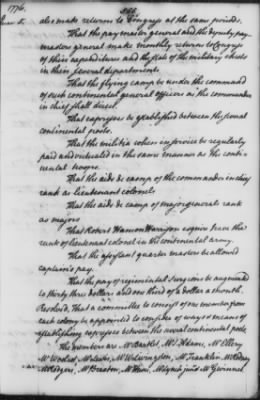 1776.
June 5.
also make returns to Congress at the same periods.
That the pay master general and the deputy pay
masters general make monthly returns to Congress
of their expenditures and the state of the military chests
in their several departments.
That the flying camp be under the command
of such continental general officers as the commander
in chief shall direct.
That expresses be established between the several
continental posts.
That the militia when in service be regularly
paid and victualed in the same manner as the conti-
nental troops.
That the aids de camp of the commander in chief
rank as lieutenant colonels
That the aids de camp of major generals rank
as majors
That Robert Hanson Harrison esquire have the
rank of lieutenant colonel in the continental army.
That the assistant quarter master be allowed
captains pay.
That the pay of regimental surgeons be augmented
to thirty three dollars and one third of a dollar a month.
Resolved, that a committee to consist of one member from
each colony be appointed to consider of ways & means of
establishing expresses between the several continental posts.
The members are Mr Bartlet Mr S. Adams, Mr Ellery
Mr Wolcot Mr Lewis, Mr W. Livingston, Mr Franklin, Mr
Mr Rodgers, Mr Braxton, Mr Hewes, Mr Lynch junr Mr Gwinnet